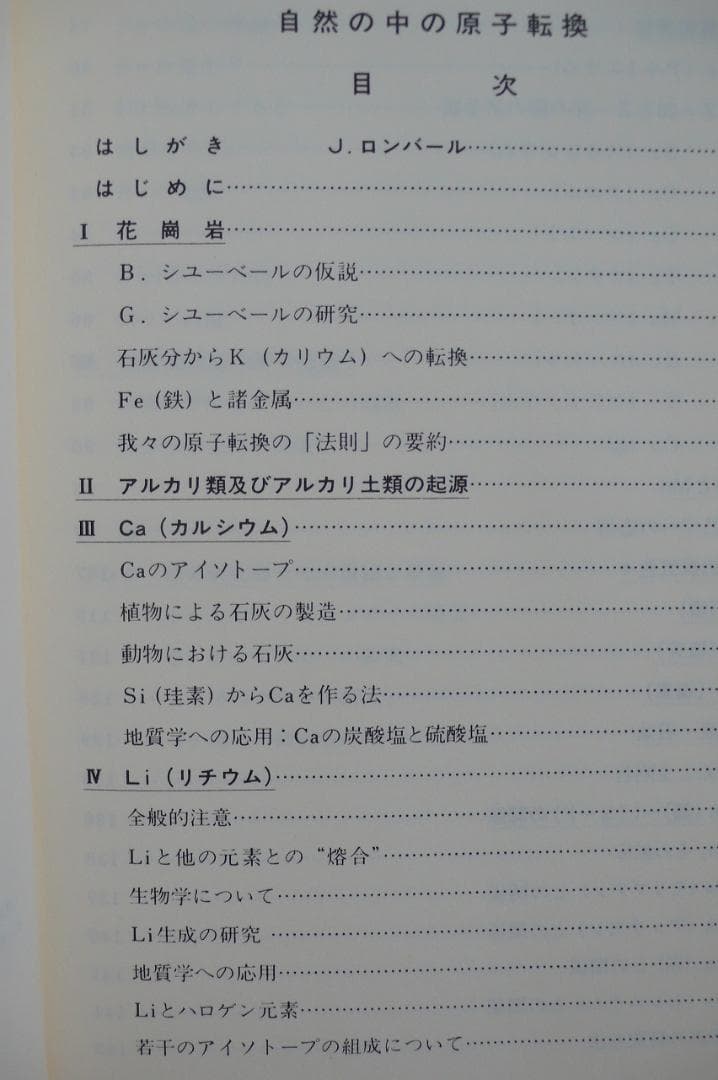 自然の中の原子転換
目次
はしがき J.ロンバール
はじめに
Ⅰ 花崗岩
B. シユーベールの仮説
G. シユーベールの研究
石灰分からK(カリウム)への転換
Fe(鉄)と諸金属
我々の原子転換の「法則」の要約
Ⅱ アルカリ類及びアルカリ土類の起源
Ⅲ Ca(カルシウム)
Caのアイソトープ
植物による石灰の製造
動物における石灰
Si(珪素)からCaを作る法
地質学への応用:Caの炭酸塩と硫酸塩
Ⅳ Li(リチウム)
全般的注意
Liと他の元素との“熔合”
生物学について
Li生成の研究
地質学への応用
Liとハロゲン元素
若干のアイソトープの組成について